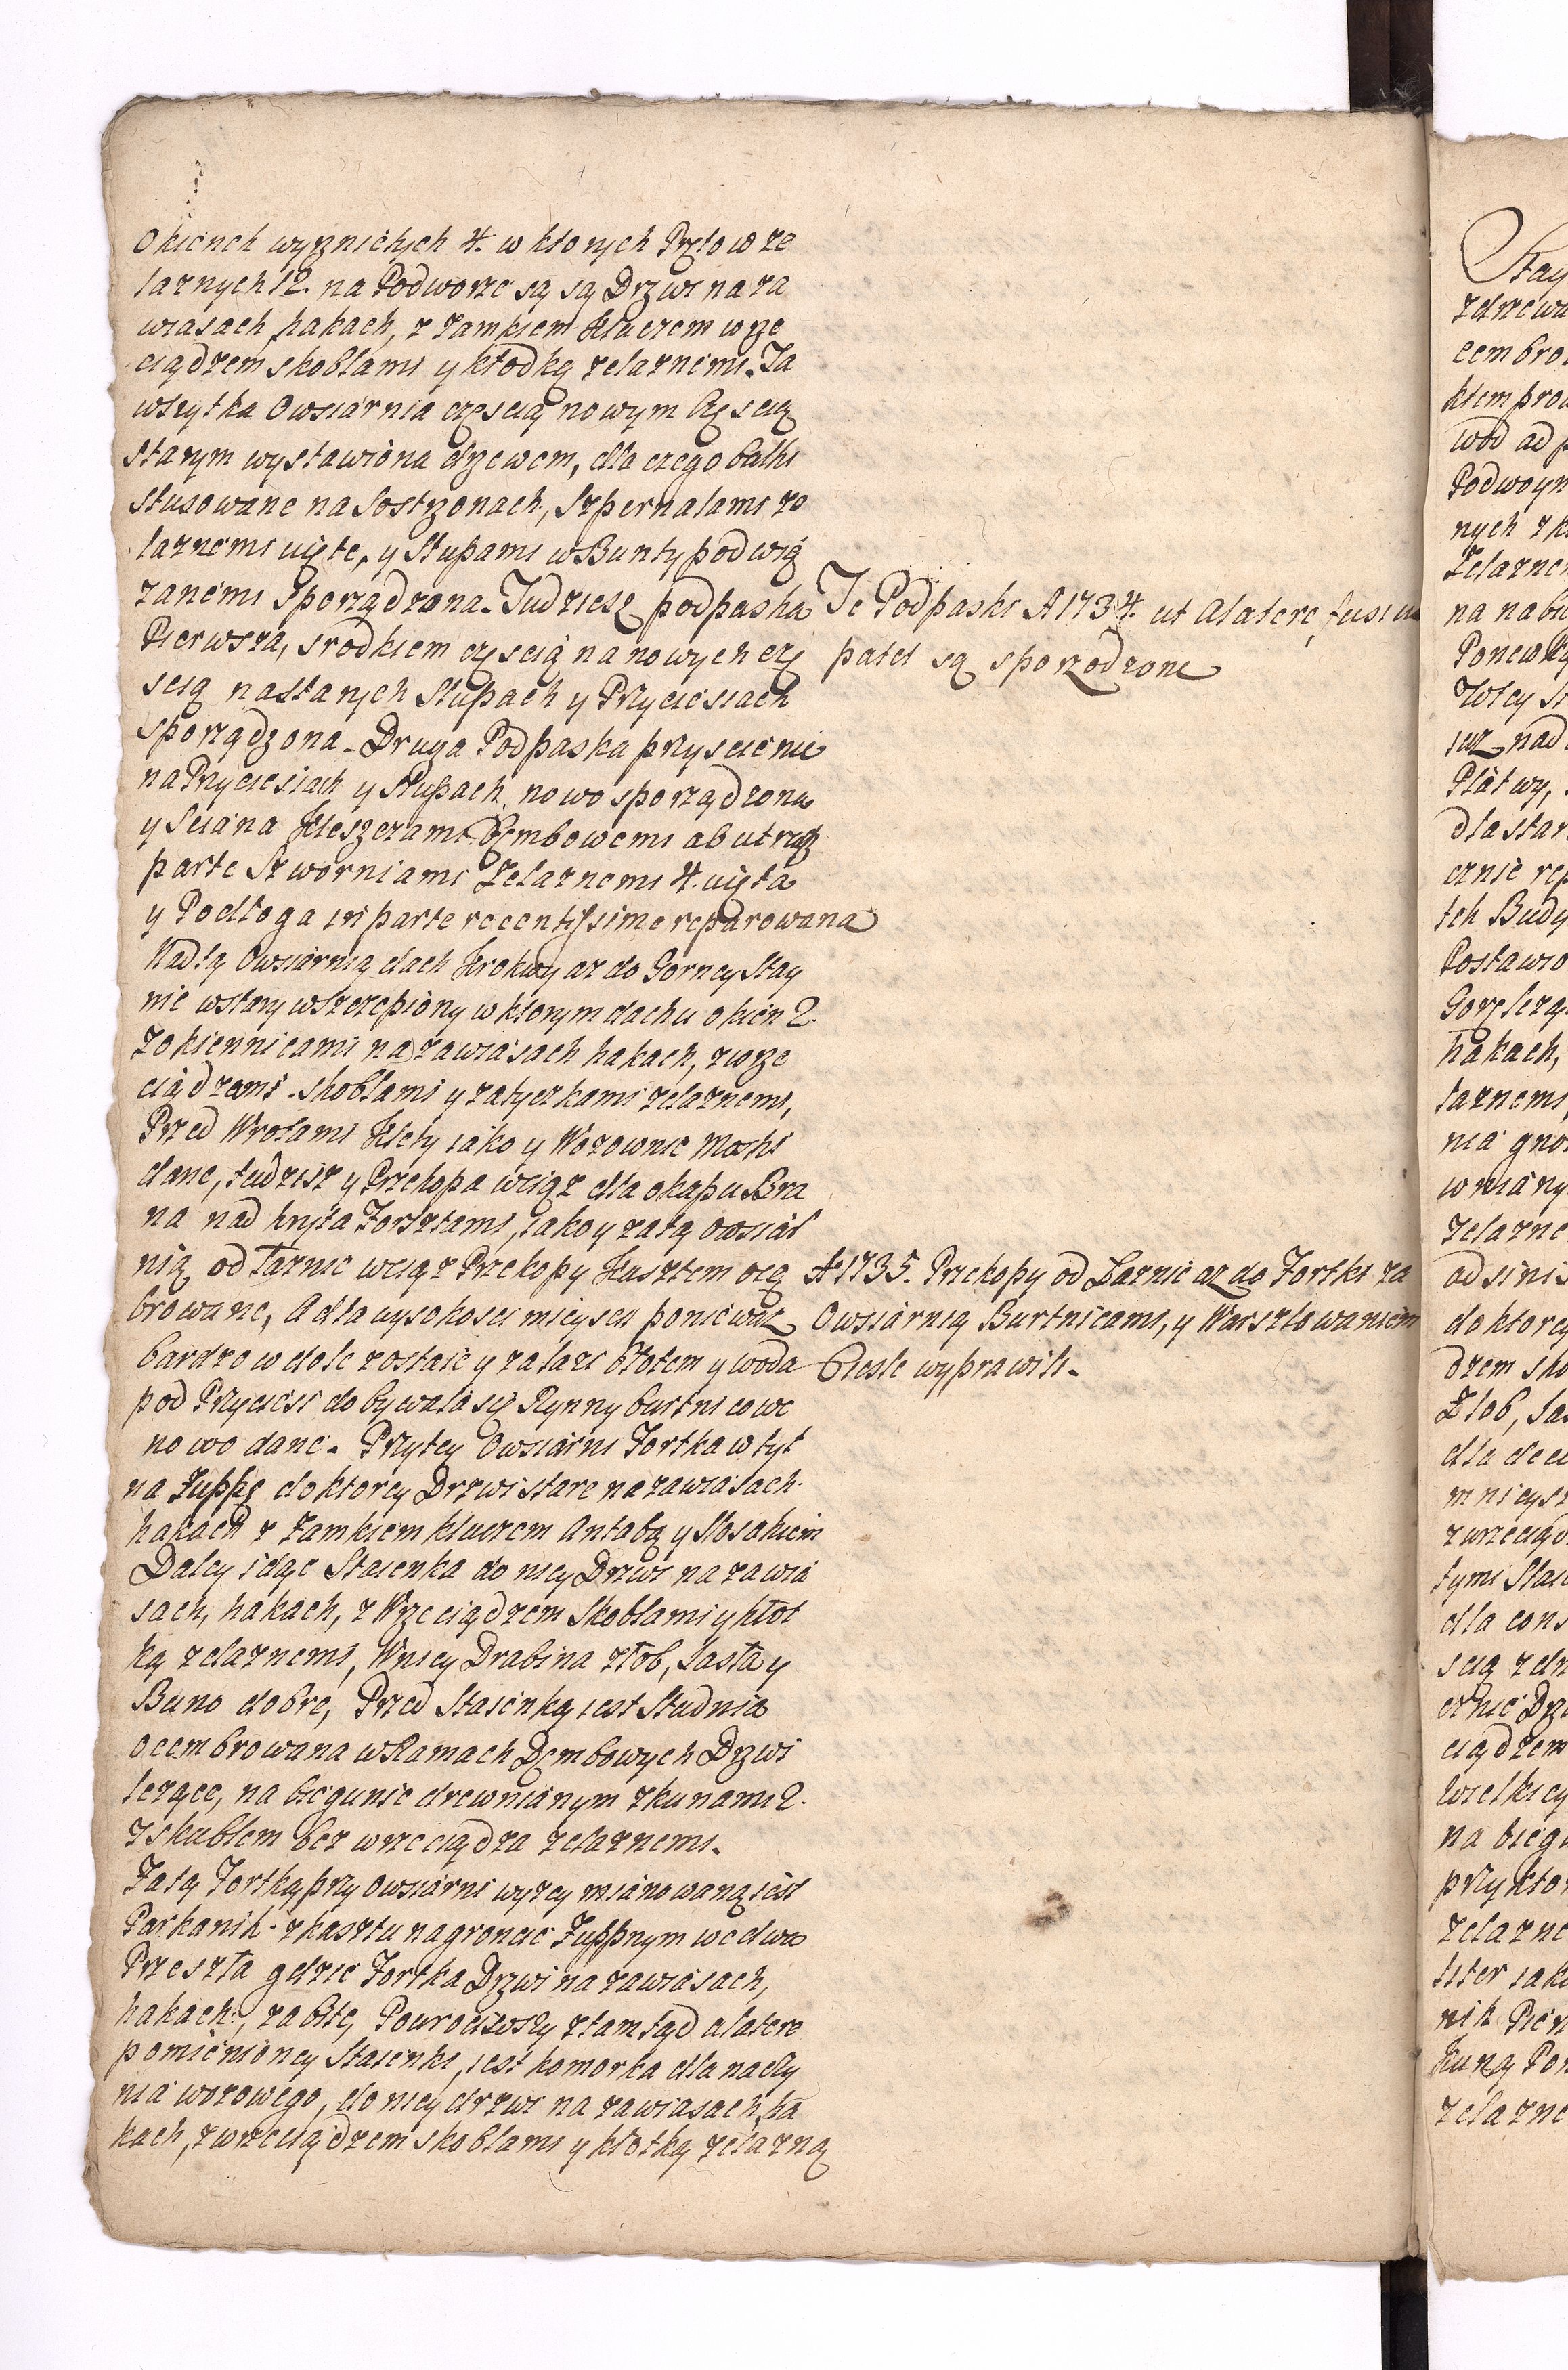 okienek wyznichych 4. w ktorych Prętow że
laznych 12. na Podworze są są Drzwi na za
wiasach hakach, z zamkiem kluczem wrze
ciądzem skoblami y kłodką zelaznemi. Ta
wszytka Owsiarnia częscią nowym Częscią
starym wystawiona drzewem, dla czego balki
stusowane na Sostrzonach, Szpernalami ze
laznemi uięte, y Stupami w Bunty podwią
zanemi sporządzona. Tudziesz podpaska
Pierwsza, srodkiem częscią na nowych czę
scią nastarych Stupach y Przyciesiach
sporządzona. Druga Podpaska przy scienie
na Przyciesiach y Stupach nowo sporządzona
y Sciana Kleszczami Dembowemi ab utraq
parte Sworniami Zelaznemi 4. uięta
y Podłoga in parte recentissime reparowana
Nad tą Owsiarnią dach Krokwy az do Gorney Stay
nie wstary wszczepiony w ktorym dachu okien 2.
z okiennicami na zawiasach hakach, z wrze
ciądzami skoblami y zatyczkami zelaznemi,
Przed Wrotami Klety iako y Wozownie Mostki
dane, tudziesz y Przekopa wciąz dla okapu Bra
na nad kryta Forsztami, iako y za tą owsiar
nią od Łaznie wciąz Przekopy Kasztem oce
browane, A dla wysokosci mieysca poniewaz
bardzo w dole zostaie y zalazi błotem y woda
pod Przyciesi dobywała się Rynny burtnicowe
nowo dane. Przytey Owsiarni Fortka w tył
na Żuppę do ktorey Drzwi stare na zawiasach
hakach z zamkiem kluczem Antabą y Nosakiem
Daley idąc Staienka do niey Drzwi na zawia
sach, hakach, z Wrzeciądzem Skoblami y kłot
ką zelaznemi, Wniey Drabina złob, Sasta y
Buno dobre, Przed Staienką iest Studnia
ocembrowana w Ramach Dembowych Drzwi
lezące, na biegunie drewnianym z kunami 2.
z skublem bez wrzeciądza zelaznemi.
Zatą Fortką przy Owsiarni wyzey mianowaną iest
Parkanik z kasztu na groncie Żuppnym we dwa
Przeszła gdzie Fortka Drzwi na zawiasach,
hakach, zabite, Powrociwszy z tamtąd a latere
pomienioney Staienki, iest komorka dla naczy
nia wozowego, do niey drzwi na zawiasach, ha
kach, z wrzeciądzem skoblami y kłotką zelazną
Te Podpaski A 1734. ut a latere, fusius
patet są sporzodzone
Aº 1735. Przekopy od Łaznie az do Fortki za
Owsiarnią Burtnicami, y Warsztowaniem
Ciesle wyprawili.
Stay
zdrzewa
cembro
ktem pro
wod ad p
Podwoyn
nych z k
Zelazne
na na bi
Ponewa
nad
Płatwy,
dla star
cznie rep
tch Budy
Postawio
hakach,
laznemi
nia gno
w miany
zelazne
ad sinis
do ktorey
dzem sko
Złob, Sas
dla de
mnieysz
z wrzeciąd
tymi Staie
dla cons
scią z dr
Drz
ciądzem
Wielkiey
na biegu
przy ktor
zelazne
liter iako
nik Pien
Kuną Pon
zelazne